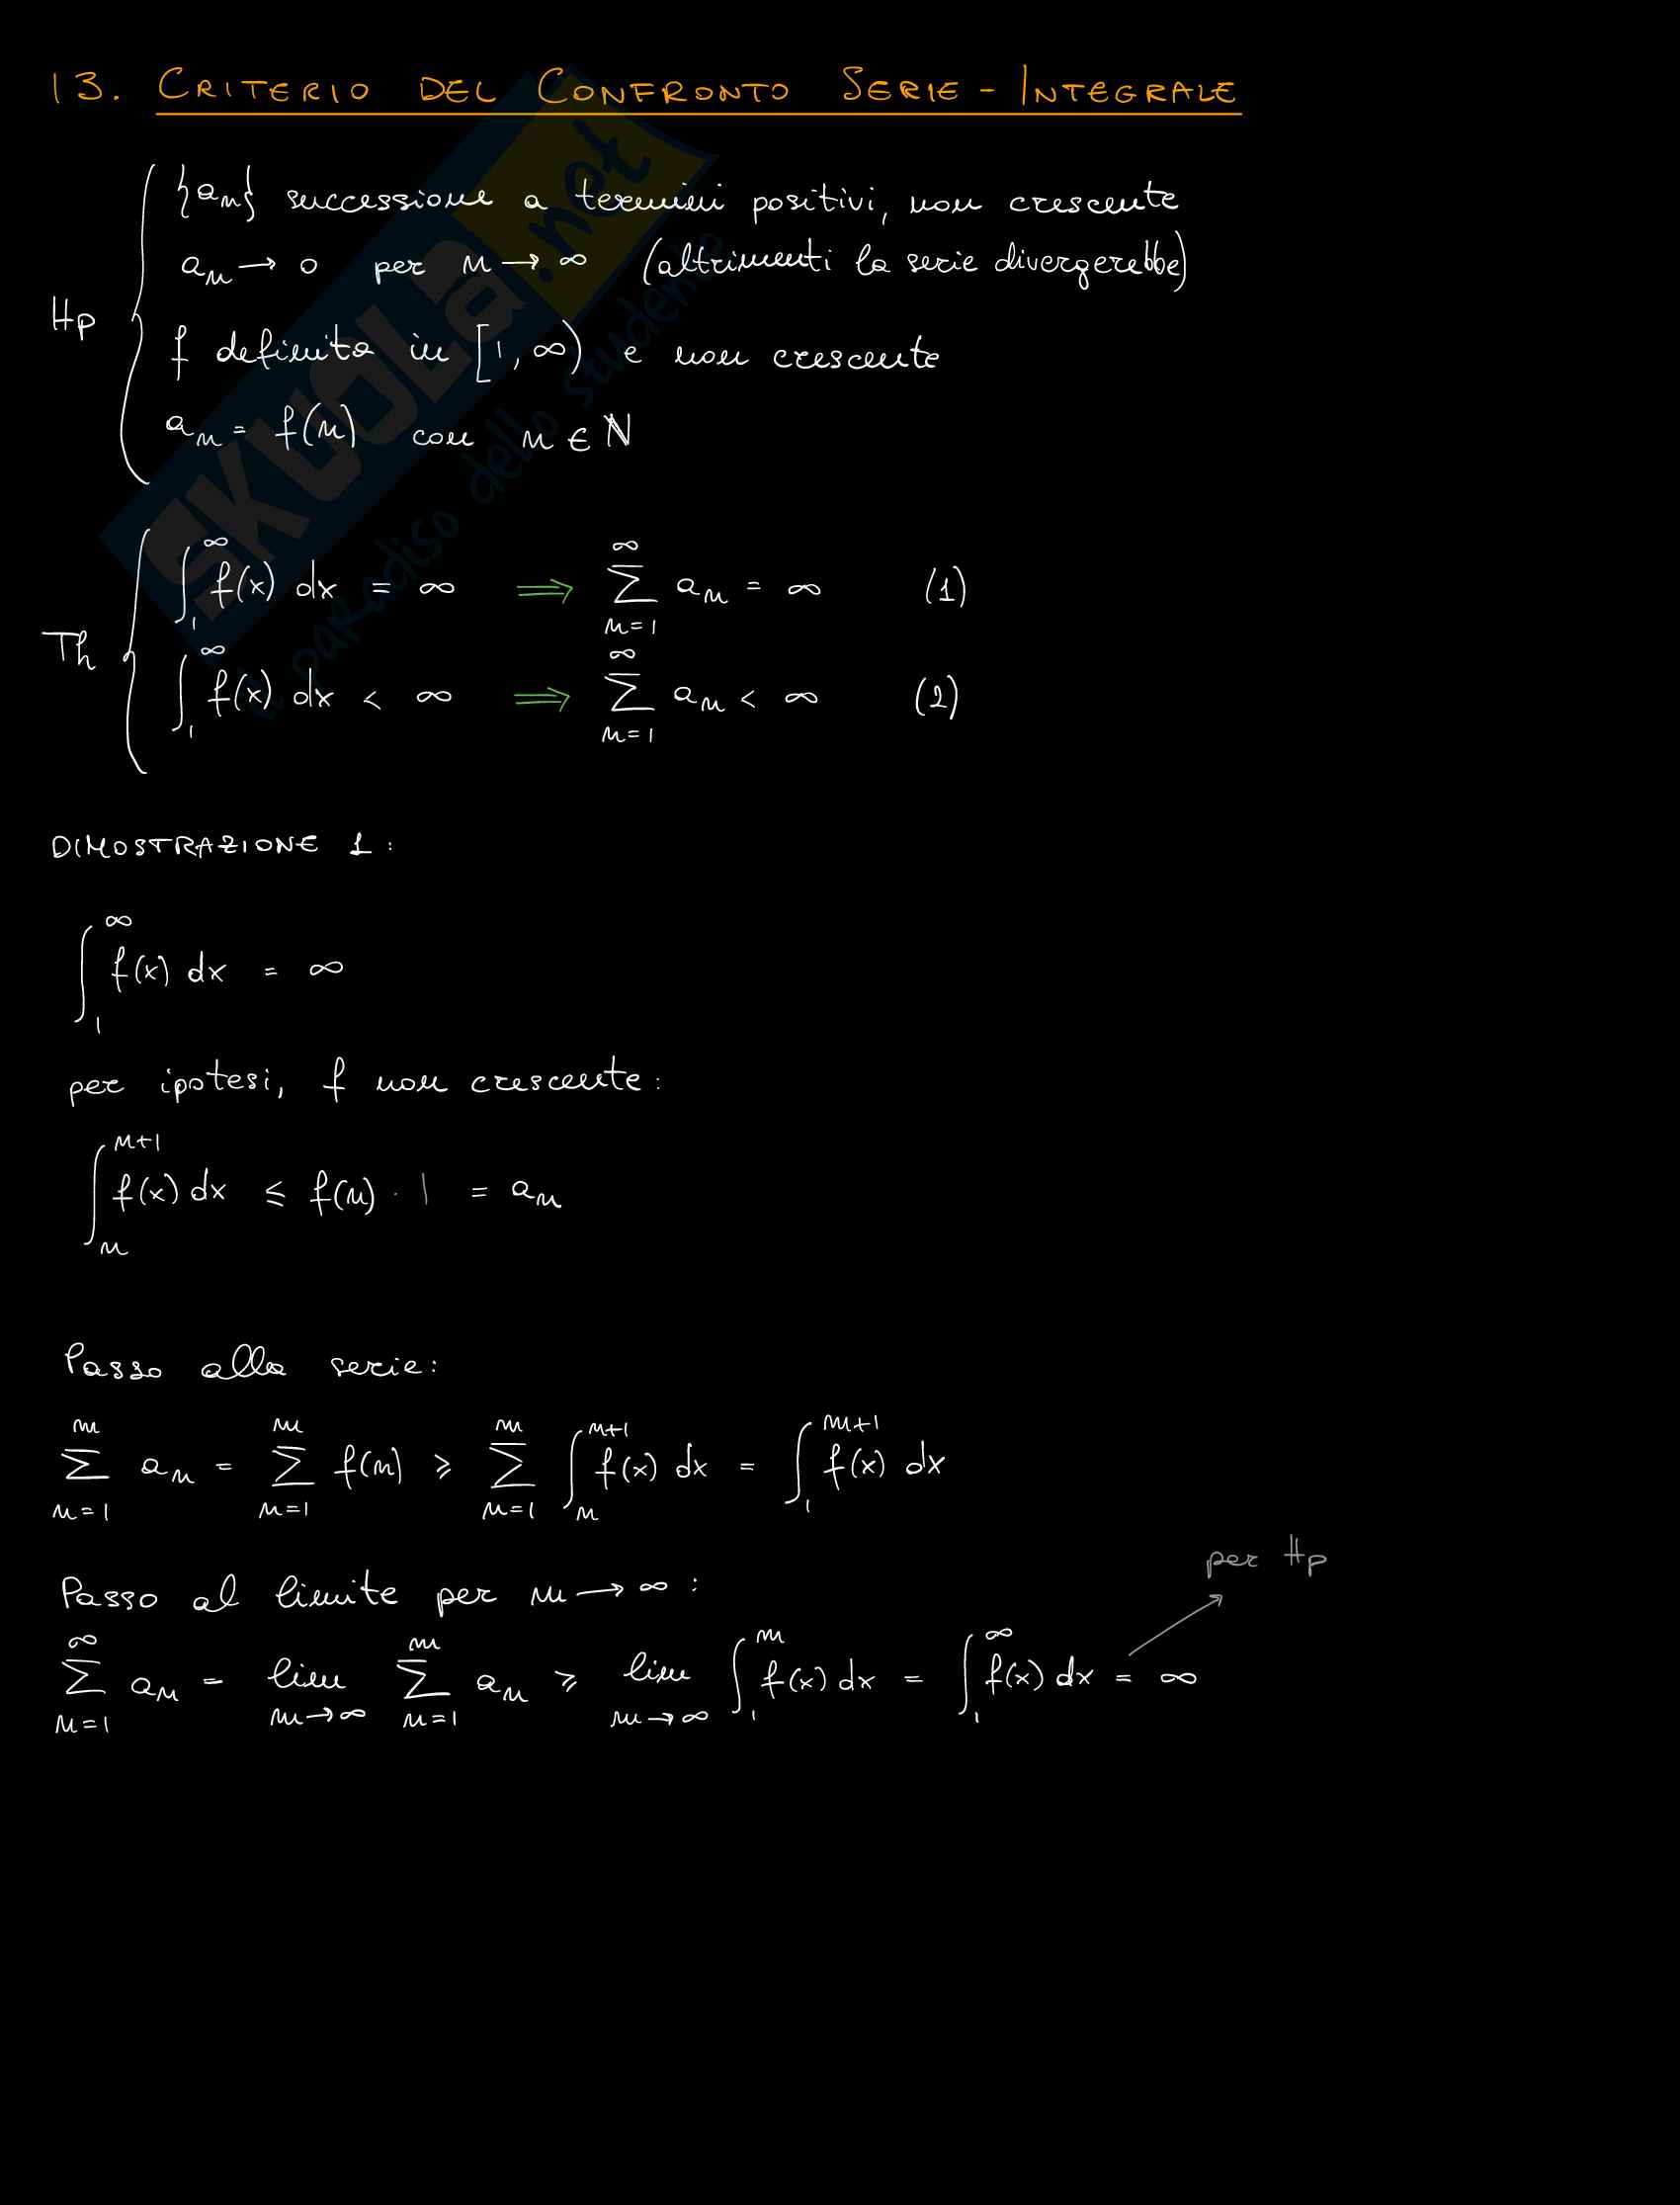 13. CRITERIO DEL CONFRONTO SERIE - INTEGRALE
{aₙ} successione a termini positivi, non crescente
aₙ → 0 per n → ∞ (altrimenti la serie divergerebbe)
Hp
f definita in [1, ∞) e non crescente
aₙ = f(n) con n ∈ ℕ
∫₁^∞ f(x) dx = ∞ ⟹ ∑_{n=1}^∞ aₙ = ∞ (1)
Th
∫₁^∞ f(x) dx < ∞ ⟹ ∑_{n=1}^∞ aₙ < ∞ (2)
DIMOSTRAZIONE 1:
∫₁^∞ f(x) dx = ∞
per ipotesi, f non crescente:
∫ₙ^{n+1} f(x) dx ≤ f(n) · 1 = aₙ
Passo alla serie:
∑_{n=1}^m aₙ = ∑_{n=1}^m f(n) ≥ ∑_{n=1}^m ∫ₙ^{n+1} f(x) dx = ∫₁^{m+1} f(x) dx
per Hp
Passo al limite per m → ∞ :
∑_{n=1}^∞ aₙ = lim_{m→∞} ∑_{n=1}^m aₙ ≥ lim_{m→∞} ∫₁^m f(x) dx = ∫₁^∞ f(x) dx = ∞
SKUOLA.net
il paradiso dello studente